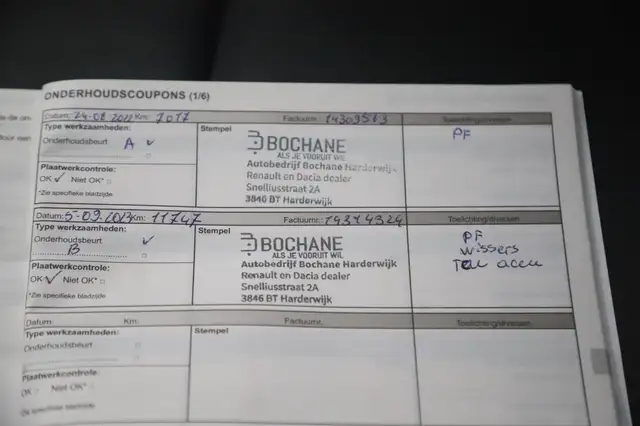 ONDERHOUDSCOUPONS (1/6)
Datum: 24-08-2022 Km: 7017 Factuurnr.: 14309563 Toelichting/diversen
Type werkzaamheden: Stempel PF
Onderhoudsbeurt A
BOCHANE
ALS JE VOORUIT WIL
Autobedrijf Bochane Harderwijk
Plaatwerkcontrole: Renault en Dacia dealer
OK Niet OK* Snelliusstraat 2A
*Zie specifieke bladzijde 3846 BT Harderwijk
Datum: 5-09-2023 Km: 11747 Factuurnr.: 14314324 Toelichting/diversen
Type werkzaamheden: Stempel PF
Onderhoudsbeurt BOCHANE wissers
B ALS JE VOORUIT WIL
Autobedrijf Bochane Harderwijk
Plaatwerkcontrole: Renault en Dacia dealer
OK Niet OK* Snelliusstraat 2A
*Zie specifieke bladzijde 3846 BT Harderwijk
Datum: Km: Factuurnr. Toelichting/diversen
Type werkzaamheden: Stempel
Onderhoudsbeurt
Plaatwerkcontrole:
OK Niet OK*
*Zie specifieke bladzijde